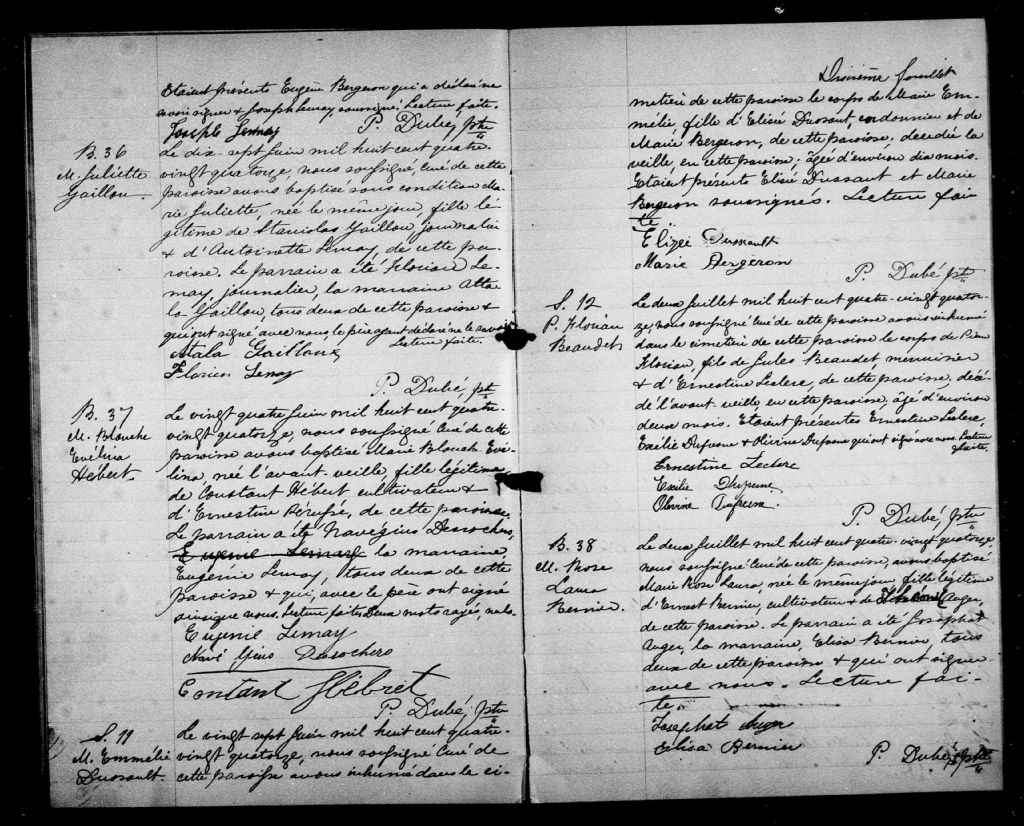 étaient présents Eugène Bergeron qui a déclaré ne
savoir signer & Joseph Lemay, soussigné. Lecture faite.
Joseph Lemay P. Dubé, Ptre
B. 36
M. Juliette
Gaillou.
Le dix-sept Juin mil huit cent quatre-
vingt quatorze, nous soussigné, Curé de cette
paroisse avons baptisé sous condition Ma-
rie Juliette, née le même jour, fille lé-
gitime de Stanislas Gaillou, journalier
& d'Antoinette Lemay, de cette pa-
roisse. Le parrain a été Florian Le-
may, journalier, la marraine Atta-
la Gaillou, tous deux de cette paroisse &
qui ont signé avec nous, le père ayant déclaré ne le savoir
Lecture faite.
Atala Gailloux
Florien Lemay
P. Dubé, Ptre
B. 37
M. Blanche
Evélina
Hébert.
Le vingt quatre Juin mil huit cent quatre-
vingt quatorze, nous soussigné Curé de cette
paroisse avons baptisé Marie Blanche Evé-
lina, née l'avant-veille, fille légitime
de Constant Hébert cultivateur &
d'Ernestine Pérusse, de cette paroisse.
Le parrain a été Navégius Desrochers,
Eugenie Lemay la marraine,
Eugénie Lemay, tous deux de cette
paroisse & qui, avec le père ont signé
ainsi que nous. Lecture faite. Deux mots rayés, nuls.
Eugenie Lemay
Navé Gius Desrochers
Constant Hébret
P. Dubé, Ptre
S. 11
M. Emmélie
Dussault.
Le vingt sept Juin mil huit cent quatre-
vingt quatorze, nous soussigné Curé de
cette paroisse avons inhumé dans le ci-
Troisième feuillet
metière de cette paroisse le corps de Marie Em-
mélie, fille d'Elisée Dussaut, cordonnier et de
Marie Bergeron, de cette paroisse, décédée la
veille, en cette paroisse, âgée d'environ dix mois.
Etaient présents Elisée Dussaut et Marie
Bergeron soussignés. Lecture fai-
te.
Elizée Dussault
Marie Bergeron
P. Dubé Ptre
S. 12
P. Florian
Beaudet
Le deux Juillet mil huit cent quatre-vingt quator-
ze, nous soussigné Curé de cette paroisse avons inhumé
dans le cimetière de cette paroisse le corps de Pierre
Florian, fils de Jules Beaudet menuisier
& d'Ernestine Leclerc, de cette paroisse, décé-
dé l'avant-veille en cette paroisse, âgé d'environ
deux mois. Etaient présentes Ernestine Leclerc,
Exilie Dufresne & Olivine Dufresne qui ont signé avec nous. Lecture
faite.
Ernestine Leclerc
Exilie Dufresne
Olivine Dufresne.
P. Dubé, Ptre
B. 38
M. Rose
Laura
Bernier.
Le deux Juillet mil huit cent quatre-vingt quatorze
nous soussigné Curé de cette paroisse, avons baptisé
Marie Rose Laura, née le même jour, fille légitime
d'Ernest Bernier, cultivateur & de Auger,
de cette paroisse. Le parrain a été Josaphat
Auger, la marraine, Elisa Bernier, tous
deux de cette paroisse & qui ont signé
avec nous. Lecture fai-
te.
Josephat Auger
Elisa Bernier
P. Dubé, Ptre